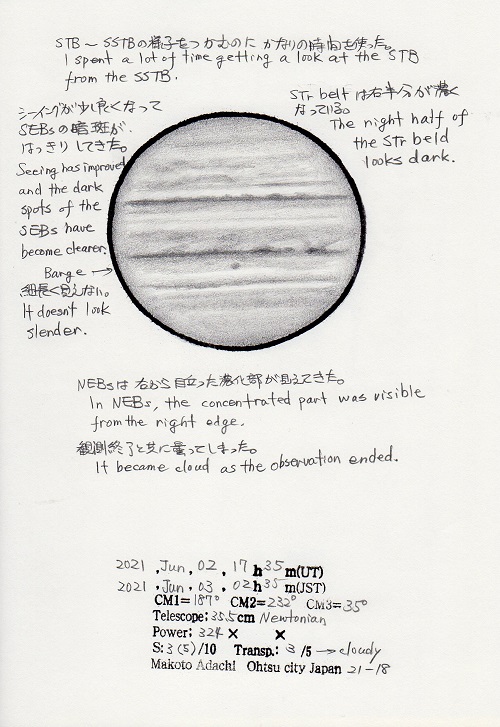 STB〜SSTBの様子をつかむのに かなりの時間を使った。
I spent a lot of time getting a look at the STB
from the SSTB.
シーイングが少し良くなって
SEBsの暗斑が
はっきりしてきた。
Seeing has improved
and the dark
spots of the
SEBs have
become clearer.
Barge →
細長く見えない。
It doesn't look
slender.
STr belt は右半分が濃く
なっている。
The right half of
the STr beld
looks dark.
NEBsは 右から目立った濃化部が見えてきた。
In NEBs, the concentrated part was visible
from the right edge.
観測終了と共に曇ってしまった。
It became cloud as the observation ended.
2021 , Jun, 02, 17 h 35 m(UT)
2021 , Jun, 03, 02 h 35 m(JST)
CM1= 187° CM2= 232° CM3= 35°
Telescope: 35.5 cm Newtonian
Power: 324 × ×
S: 3 (5) /10 Transp.: 3 /5 → cloudy
Makoto Adachi Ohtsu city Japan 21-18